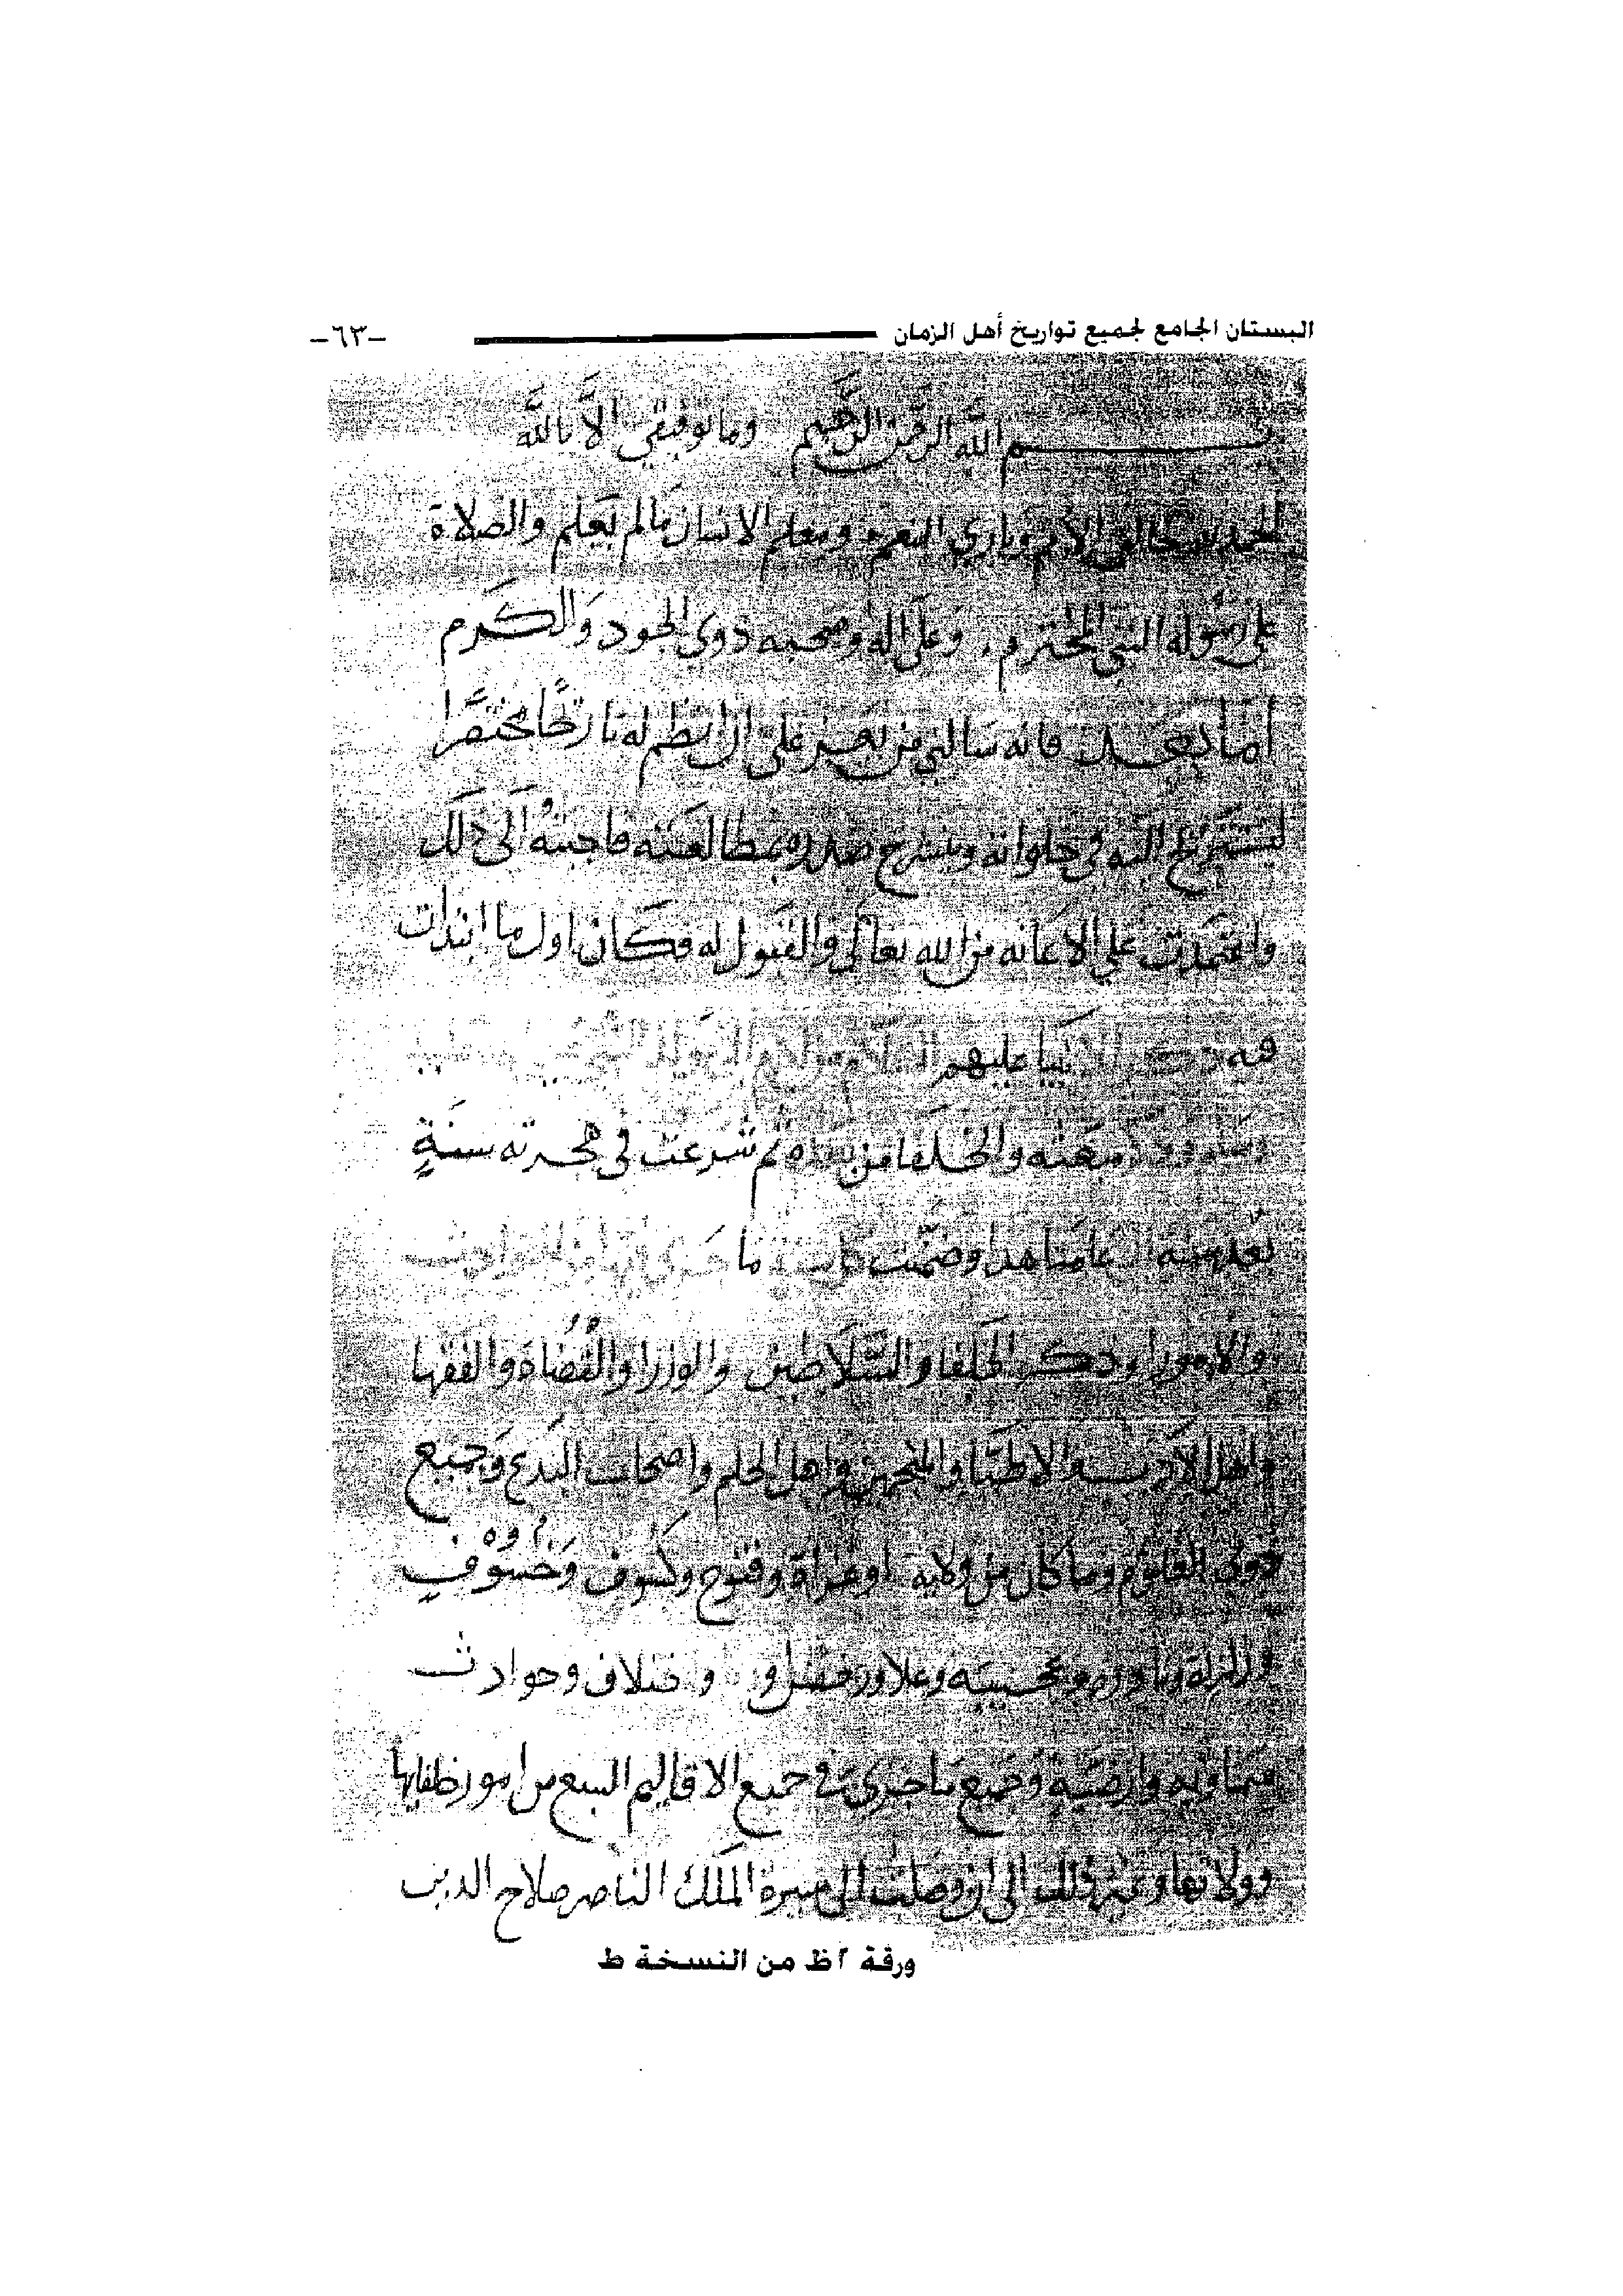 البستان الجامع لجميع تواريخ أهل الزمان -٦٣-
بسم الله الرحمن الرحيم وما توفيقي الا بالله
الحمد لله خالق الأمم وباري النعم ومعلم الانسان مالم يعلم والصلاة
على رسوله النبي المحترم وعلى اله وصحبه ذوي الجود والكرم
أما بعد فانه سالني من يعز علي ان انظم له تاريخا مختصرا
ليستريح اليه في خلواته وينشرح صدره بمطالعته فاجبته الى ذلك
واعتمدت علي الاعانه من الله تعالى والقبول له فكان اول ما ابتدات
فيه الانبيا عليهم
مبعثه والخلفا من بعده ثم شرعت في هجرته سنة
بعد سنه عامنا هدا وضمنت ما جرى من الحوادث
والامور وذكر الخلفا والسلاطين والوزرا والقضاة والفقها
واهل الادب والاطبا والمنجمين واهل الحلم واصحاب البدع وجميع
ذوي العلوم وما كان من ولاية او غزاة وفتوح وكسوف وخسوف
وزلزلة وعجيبه وغلا ورخص واختلاف وحوادث
سماويه وارضية وجميع ما جرى في جميع الاقاليم السبع من امور خلفايها
وولاتها وغير ذلك الى ان وصلت الى سيرة الملك الناصر صلاح الدين
ورقة ٢ظ من النسخة ط